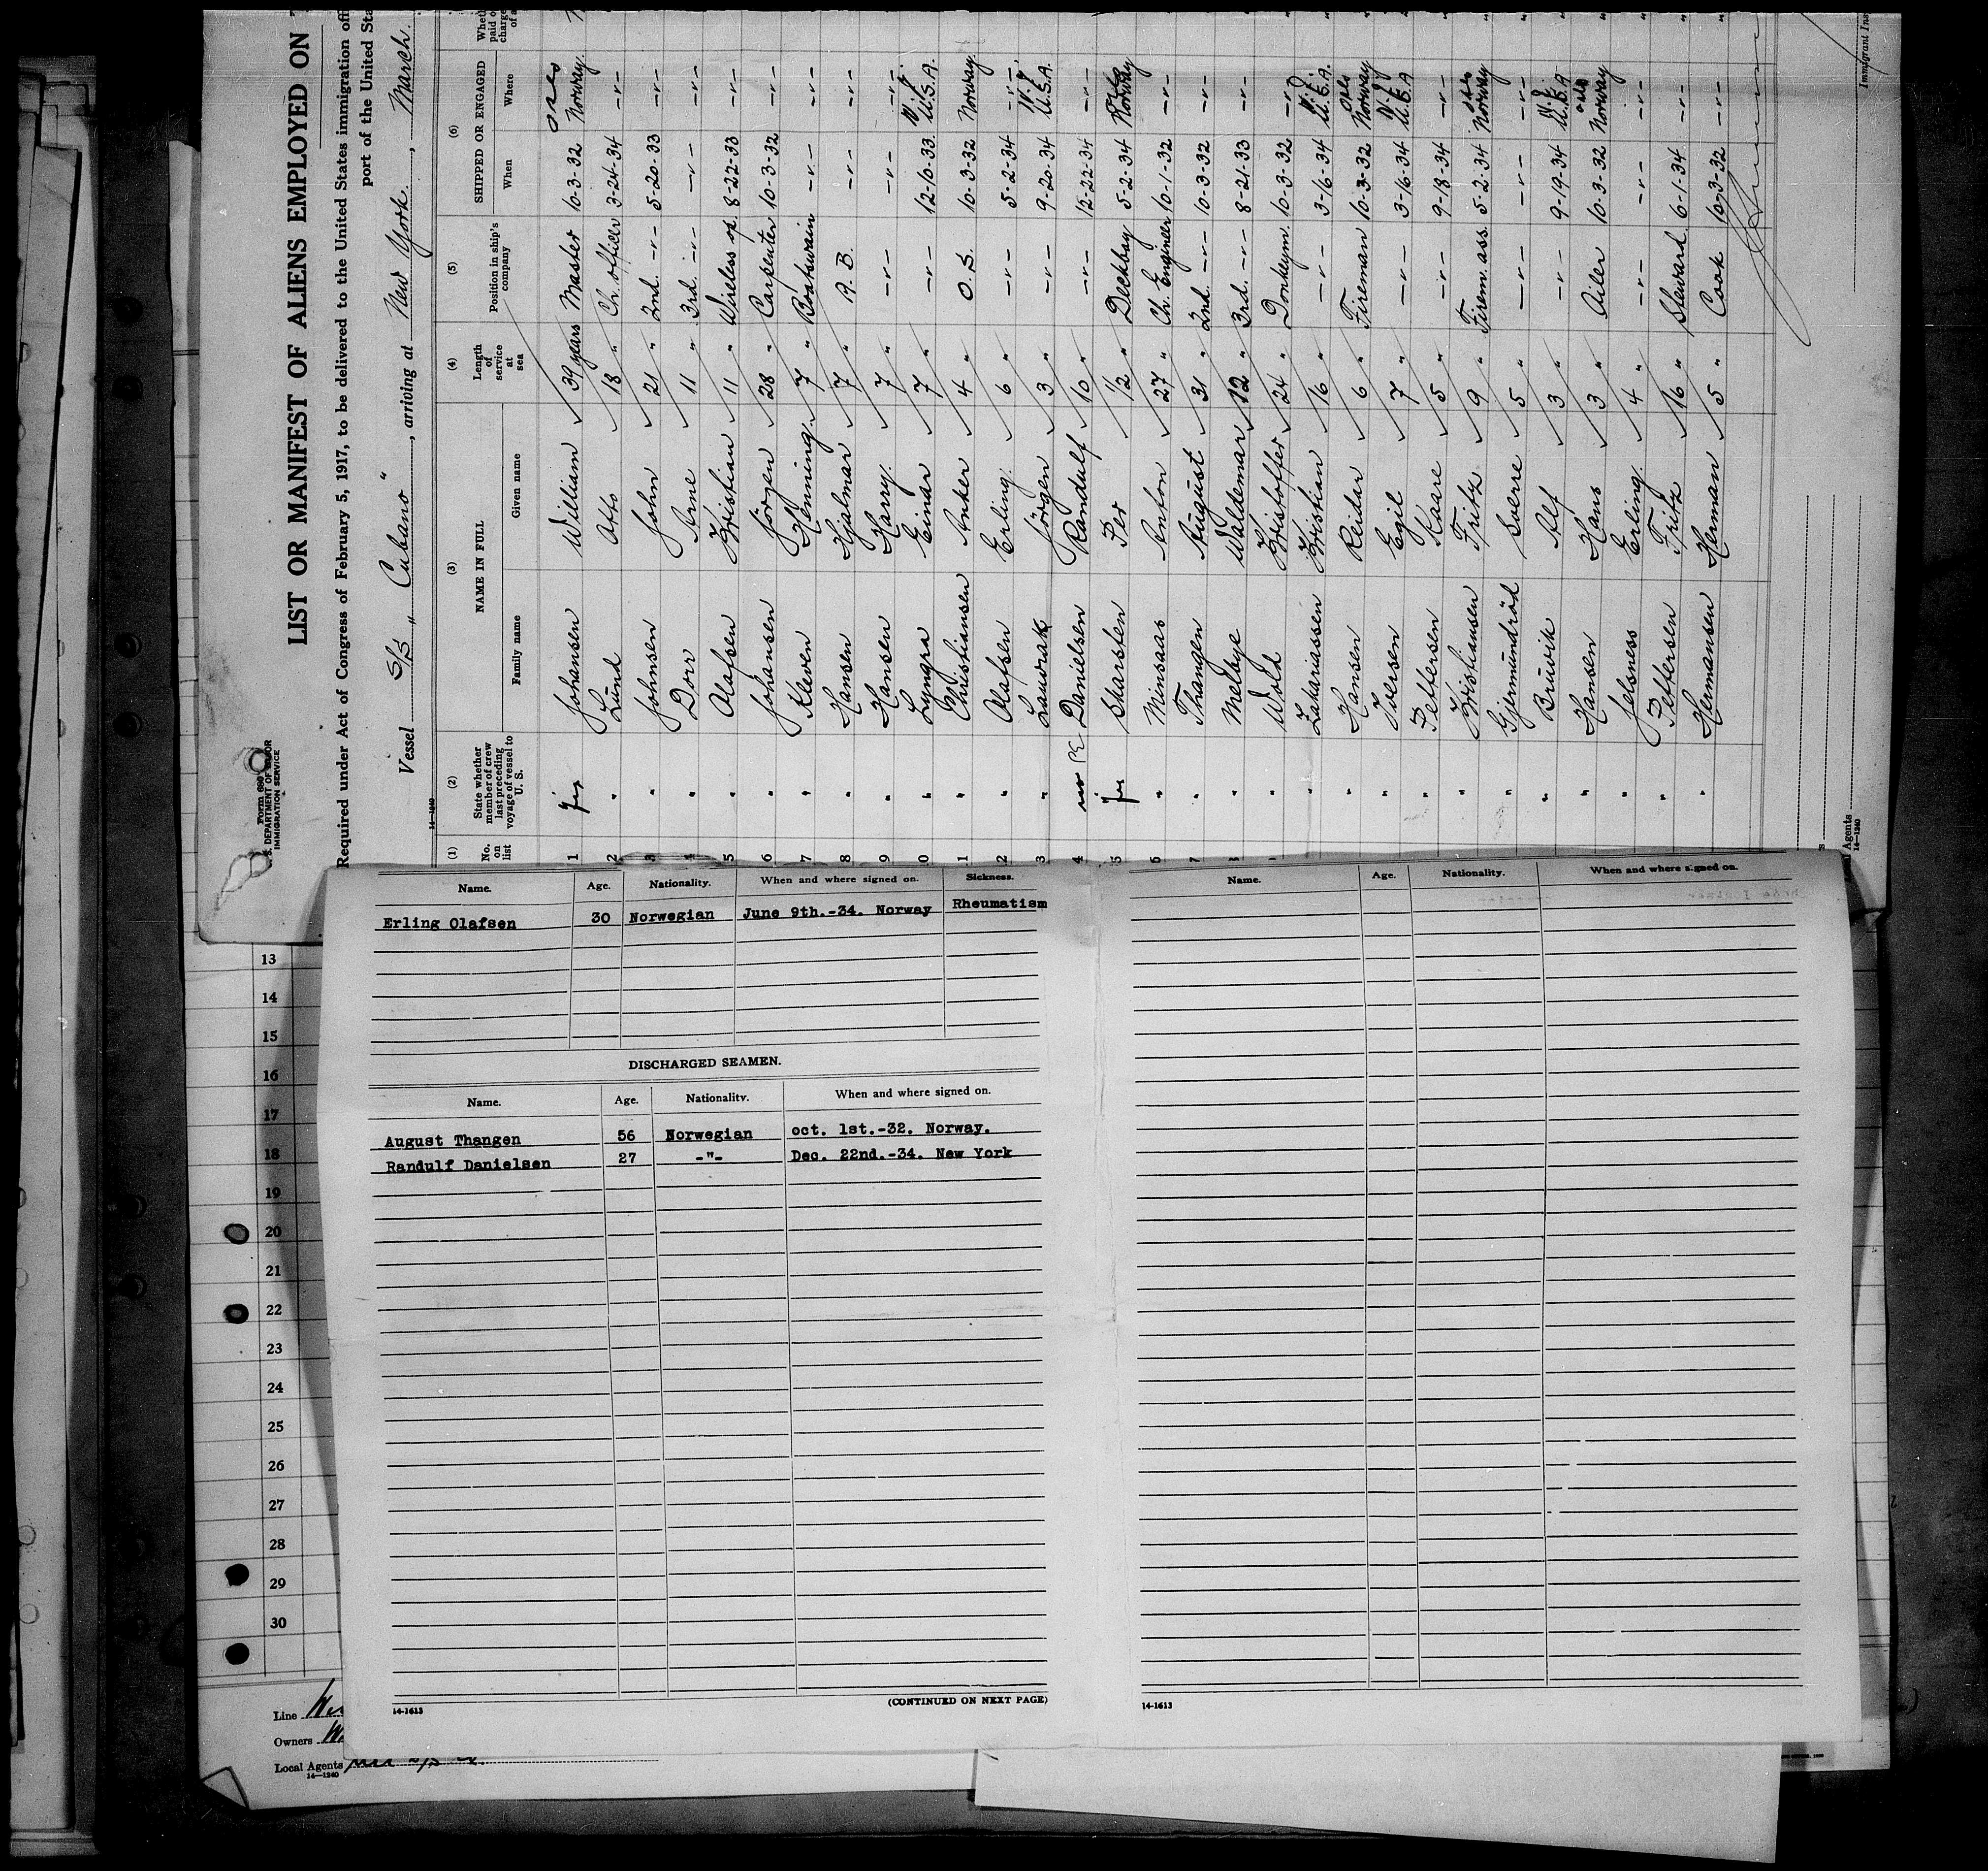 Form 680
U.S. DEPARTMENT OF LABOR
IMMIGRATION SERVICE
LIST OR MANIFEST OF ALIENS EMPLOYED ON
Required under Act of Congress of February 5, 1917, to be delivered to the United States immigration
port of the United
Vessel S/S "Cubano", arriving at New York, March
14-1240
(1) (2) (3) (4) (5) (6)
No. on list State whether member of crew last preceding voyage of vessel to U. S. NAME IN FULL Length of service at sea Position in ship's company SHIPPED OR ENGAGED
Family name Given name When Where
1 yes Johansen William 39 years Master 10-3-32 Oslo Norway
2 " Lund Otto 18 " Ch. officer 3-24-34 -"-
3 " Johnsen John 21 " 2nd. -"- 5-20-33 -"-
4 " Dorr Arne 11 " 3rd. -"- -"- -"-
5 " Olafsen Kristian 11 " Wireless op. 8-22-33 -"-
6 " Johansen Jörgen 28 " Carpenter 10-3-32 -"-
7 " Kleven Henning 7 " Boatswain -"- -"-
8 " Hansen Hjalmar 7 " A. B. -"- -"-
9 " Hansen Harry 7 " -"- -"- -"-
0 " Lyngra Einar 7 " -"- 12-10-33 U.S.A.
1 " Christiansen Anker 4 " O. S. 10-3-32 Norway
2 " Olafsen Erling 6 " -"- 5-2-34 -"-
3 " Laurak Jörgen 3 " -"- 9-20-34 U.S.A.
4 no Danielsen Randulf 10 " -"- 12-22-34 -"-
5 yes Skarsten Per 1/2 " Deckboy 5-2-34 Oslo Norway
6 " Minsaas Anton 27 " Ch. Engineer 10-1-32 -"-
7 " Thangen August 31 " 2nd. -"- 10-3-32 -"-
" Melbye Waldemar 12 " 3rd. -"- 8-21-33 -"-
" Wold Kristoffer 24 " Donkeym. 10-3-32 -"-
" Zakariassen Kristian 16 " -"- 3-16-34 U.S.A.
" Hansen Reidar 6 " Fireman 10-3-32 Oslo Norway
" Iversen Egil 7 " -"- 3-16-34 U.S.A
" Pettersen Kaare 5 " -"- 9-18-34 -"-
" Kristiansen Fritz 9 " Firem. ass. 5-2-34 Oslo Norway
" Gjermundröd Sverre 5 " -"- -"- -"-
" Bruvik Alf 3 " -"- 9-19-34 U.S.A
" Hansen Hans 3 " Oiler 10-3-32 Oslo Norway
" Jelsness Erling 4 " -"- -"- -"-
" Pettersen Fritz 16 " Steward 6-1-34 -"-
" Hermansen Herman 5 " Cook 10-3-32 -"-
Immigrant Ins
Agents
14-1240
Name. Age. Nationality. When and where signed on. Sickness.
Erling Olafsen 30 Norwegian June 9th.-34. Norway Rheumatism
DISCHARGED SEAMEN.
Name. Age. Nationality. When and where signed on.
August Thangen 56 Norwegian oct. 1st.-32. Norway.
Randulf Danielsen 27 -"- Dec. 22nd.-34. New York
14-1613
(CONTINUED ON NEXT PAGE)
Name. Age. Nationality. When and where signed on.
14-1613
13
14
15
16
17
18
19
20
21
22
23
24
25
26
27
28
29
30
Line
Owners
Local Agents
14-1240